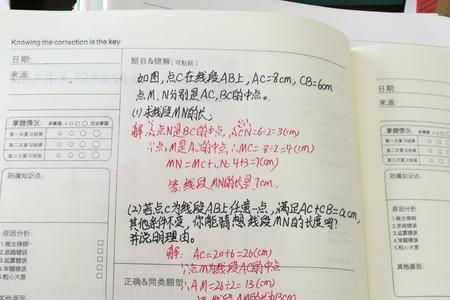 Knowing the correction is the key
日期:
来源:
掌握情况:
未掌握
完全掌握
第一次复习结果
第二次复习结果
第三次复习结果
所属知识点:
原因分析:
1.概念模糊
2.思路错误
3.运算错误
4.审题错误
5.粗心大意
其他原因:
题目&错解(可粘贴)
如图,点C在线段AB上,AC=8cm,CB=6cm
点M、N分别是AC,BC的中点。
(1)求线段MN的长;
解:∵点N是BC的中点,∴CN=6÷2=3(cm)
∵点M是AC的中点,∴MC=8÷2=4(cm)
MN=MC+CN=4+3=7(cm)
答:线段MN的长是7cm.
(2)若点C为线段AB上任意一点,满足AC+CB=acm,
其他条件不变,你能猜想线段MN的长度吗?
并说明理由。
解: AC=20+6=26(cm)
∵点M为线段AC的中点
∴AM=26÷2=13(cm)
正确&同类题型
日期:
来源:
掌握情况:
第一次复习结果
第二次复习结果
第三次复习结果
所属知识点:
原因分析:
1.概念模糊
2.思路错误
3.运算错误
4.审题错误
5.粗心大意
其他原因: